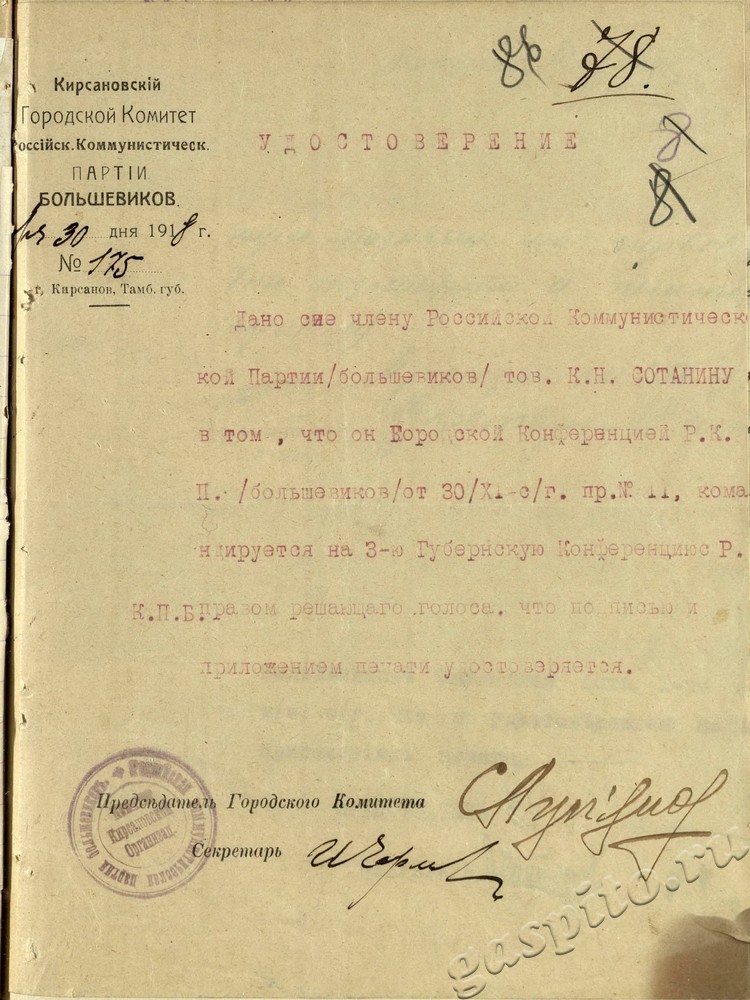 86
78.
8
8
Кирсановскій
Городской Комитет
Россійск. Коммунистическ.
ПАРТІИ
БОЛЬШЕВИКОВ.
30 дня 1918 г.
№ 175
г. Кирсанов, Тамб. губ.
УДОСТОВЕРЕНИЕ
Дано сие члену Российской Коммунистичес
кой Партии/большевиков/ тов. К.Н. СОТАНИНУ
в том , что он Городской Конференцией Р.К.
П. /большевиков/от 30/XI-с/г. пр.№ 11, кома
ндируется на 3-ю Губернскую Конференцию Р.
К.П.Б. правом решающаго голоса. что подписью и
приложением печати удостоверяется.
Предсѣдатель Городского Комитета
Секретарь
Россійская Коммунистическая партия большевиковъ
Кирсановская
Организац.
gaspito.ru